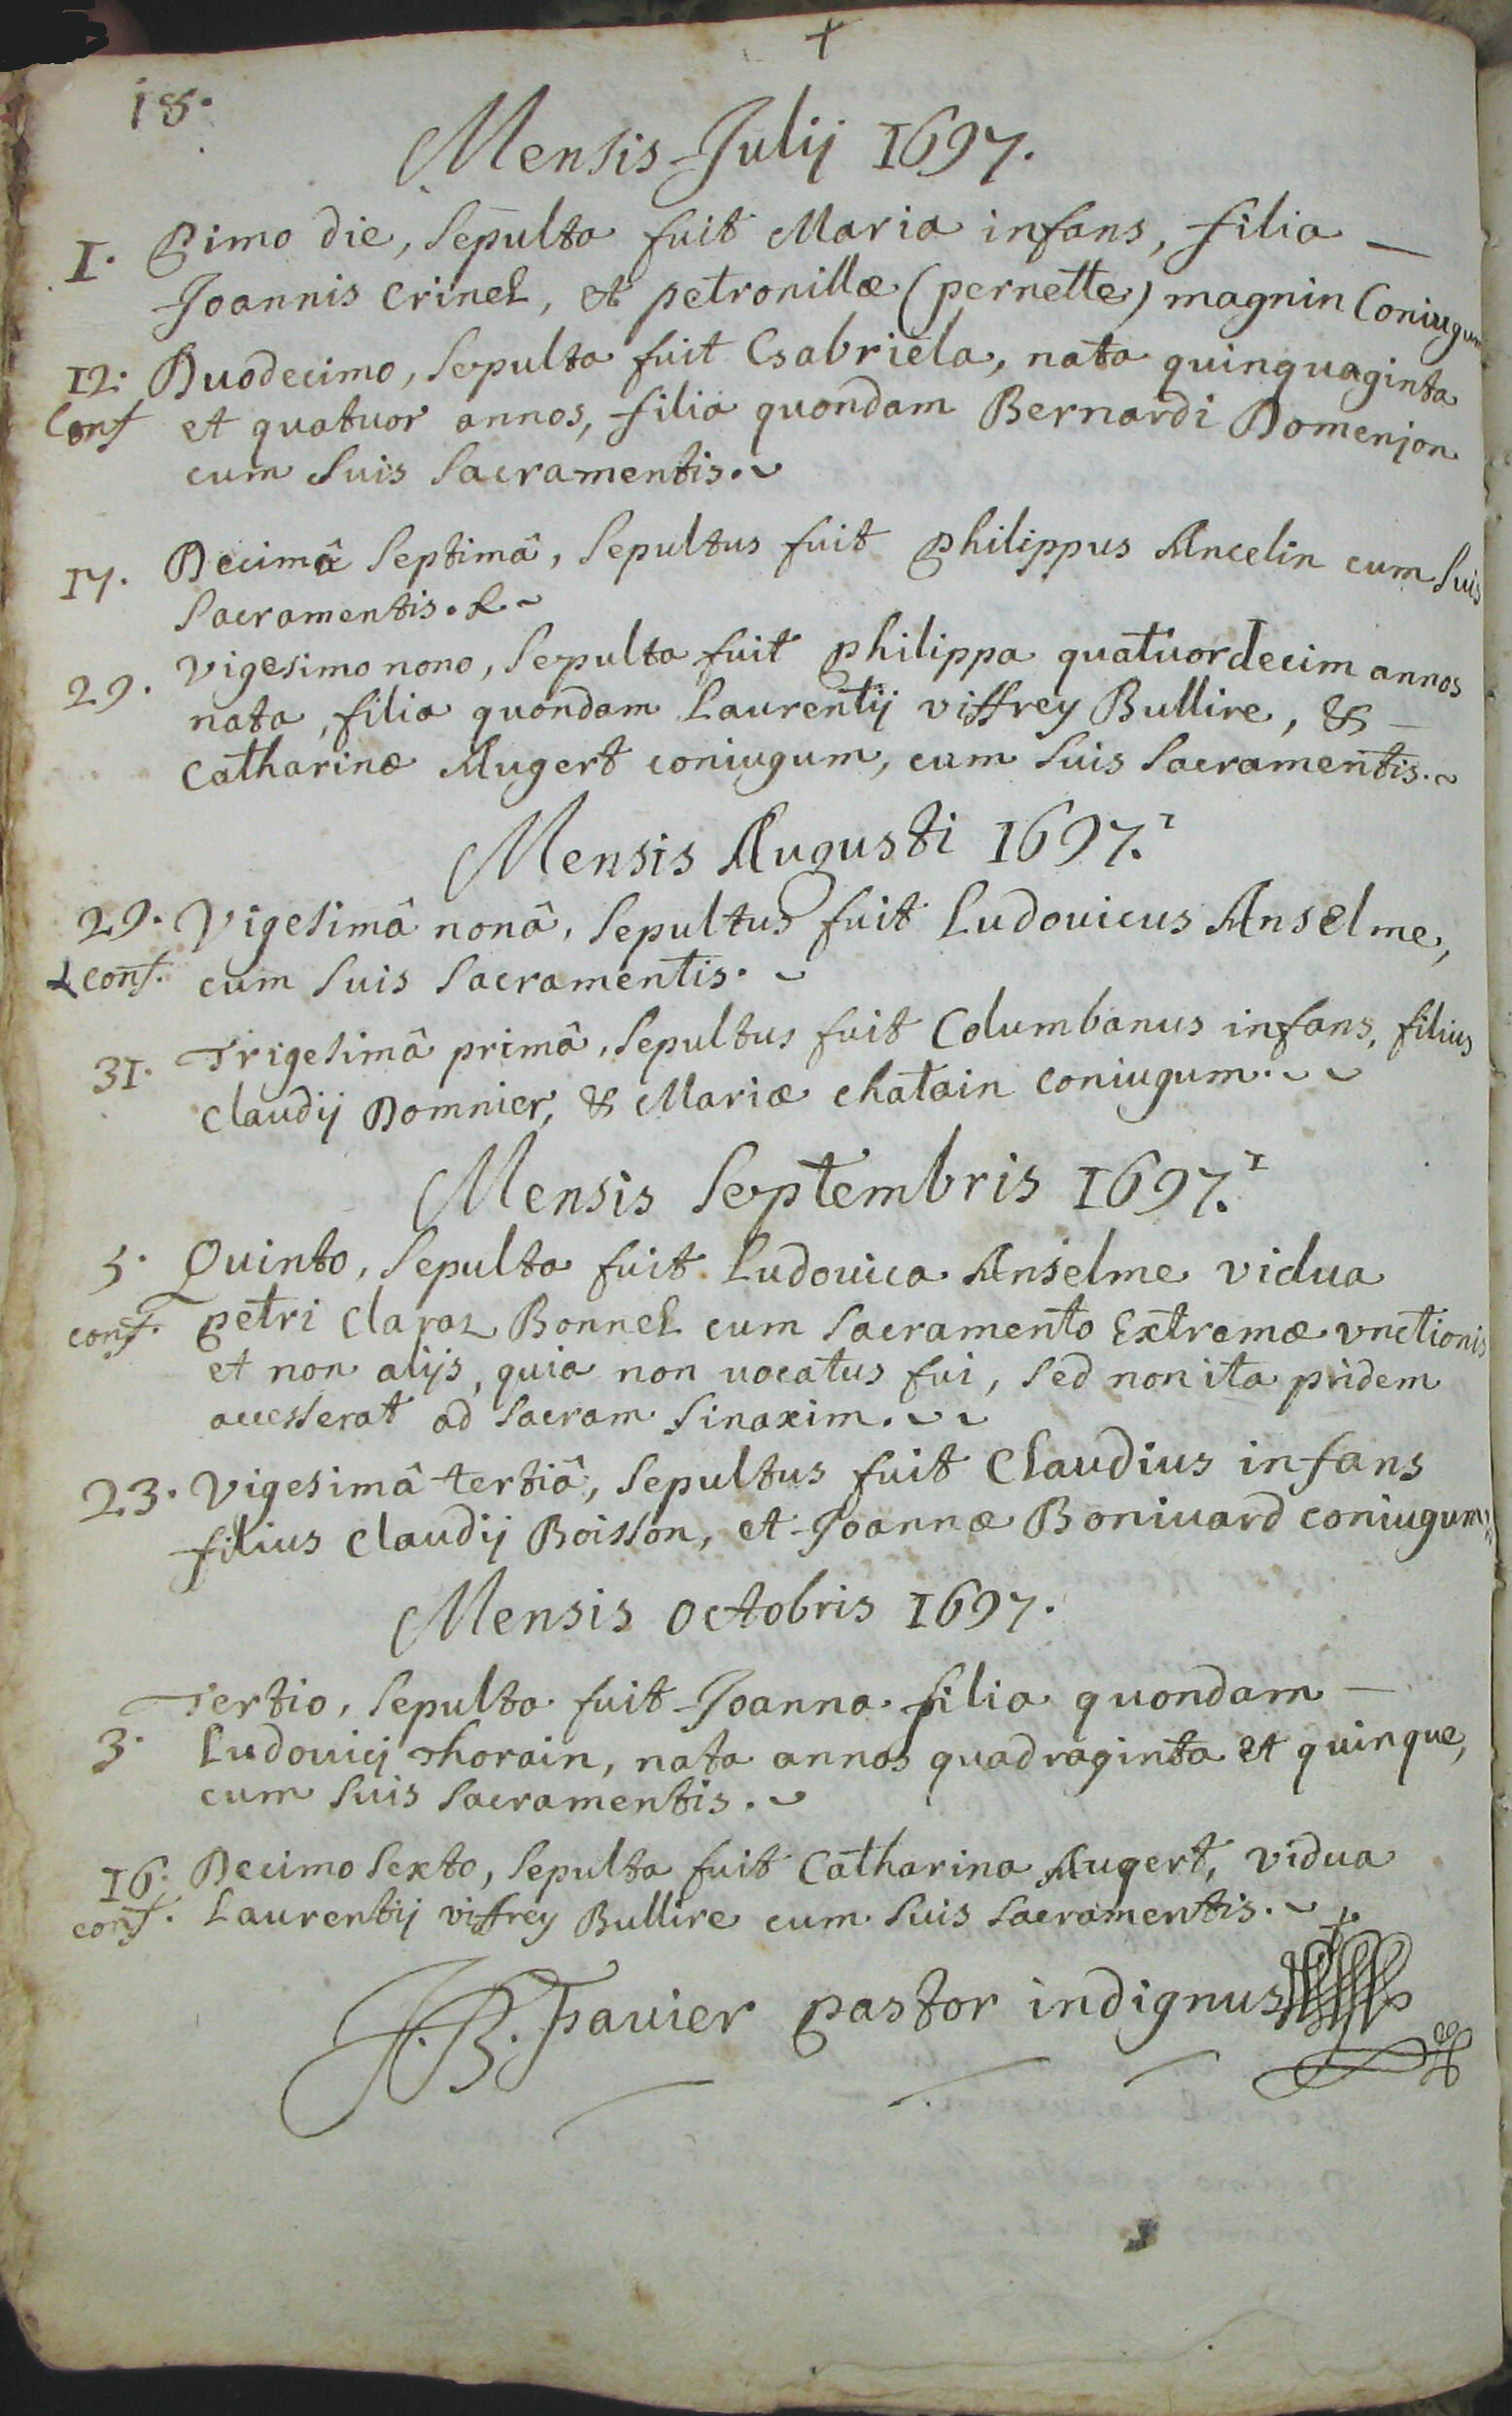 +
18.
Mensis Julij 1697.
1. Pimo die, sepulta fuit Maria infans, filia —
Joannis crinel, et petronillæ (pernette) magnin Coniugum
12. Duodecimo, sepulta fuit Gabriela, nata quinquaginta
Conf et quatuor annos, filia quondam Bernardi Domenjon
cum suis sacramentis.
17. Decimâ septimâ, sepultus fuit philippus Ancelin cum suis
sacramentis.
29. vigesimo nono, sepulta fuit philippa quatuordecim annos
nata, filia quondam Laurentij viffrey Bullire, & —
catharinæ Augert coniugum, cum suis sacramentis.
Mensis Augusti 1697.
29. Vigesimâ nonâ, sepultus fuit Ludouicus Anselme,
conf. cum suis sacramentis.
31. Trigesimâ primâ, sepultus fuit Columbanus infans, filius
claudij Domnier, & Mariæ chatain coniugum.
Mensis Septembris 1697.
5. Quinto, sepulta fuit Ludouica Anselme vidua
conf. petri claraz Bonnel cum sacramento Extremæ vnctionis
et non alijs, quia non uocatus fui, sed non ita pridem
accesserat ad sacram sinaxim.
23. vigesimâ tertiâ, sepultus fuit Claudius infans
filius claudij Boisson, et Joannæ Boniuard coniugum
Mensis octobris 1697.
3. Tertio, sepulta fuit Joanna filia quondam —
Ludouicj Thorain, nata annos quadraginta et quinque,
cum suis sacramentis.
16. Decimo sexto, sepulta fuit Catharina Augert, vidua
conf. Laurentij viffrey Bullire cum suis sacramentis.
J.B. Favier pastor indignus